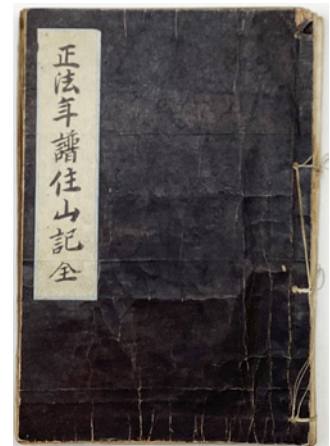 正法年譜住山記全